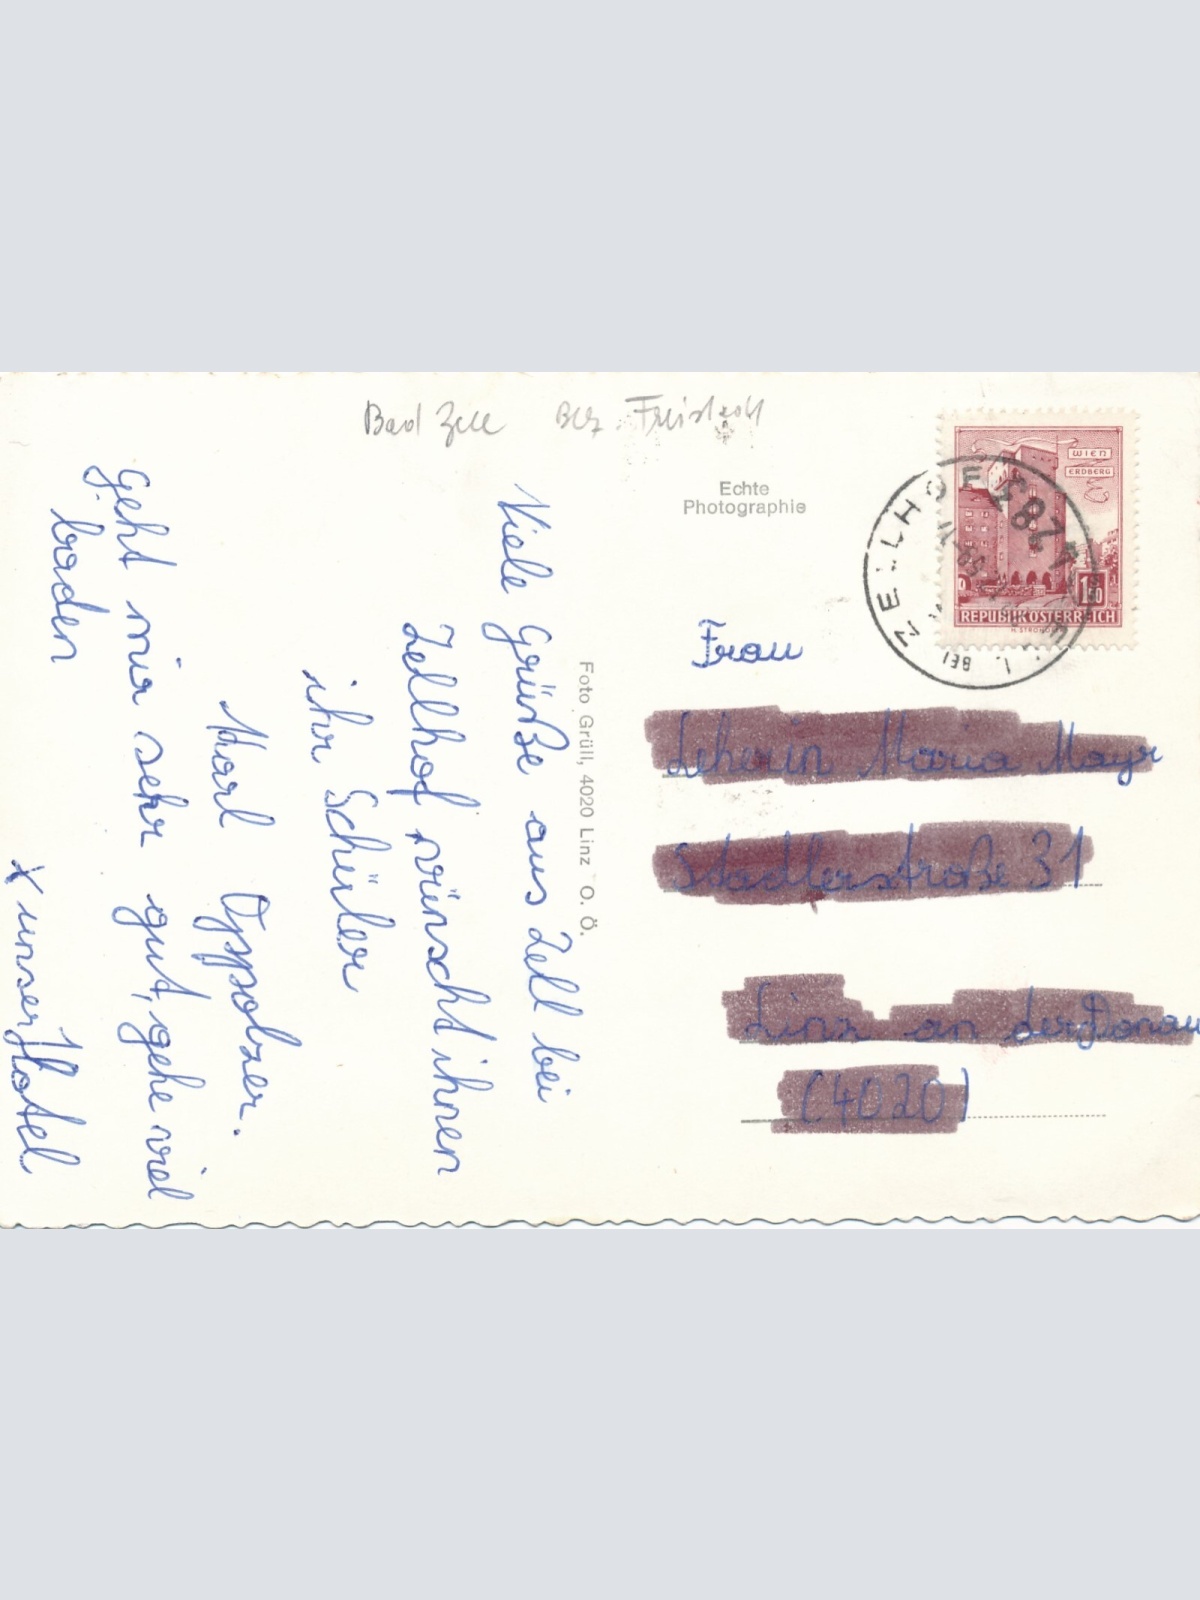 Bad Zell Bez. Freistadt
Echte
Photographie
WIEN
ERDBERG
1.50
REPUBLIK ÖSTERREICH
4283
BEI ZELLHOF
Viele Grüße aus Zell bei
Zellhof wünscht ihnen
ihr Schüler
Karl Oppolzer.
geht mir sehr gut, gehe viel
baden
X unser Hotel
Foto Grüll, 4020 Linz O. Ö.
Frau
Leherin Maria Mayr
Stadlerstraße 31
Linz an der Donau
(4020)